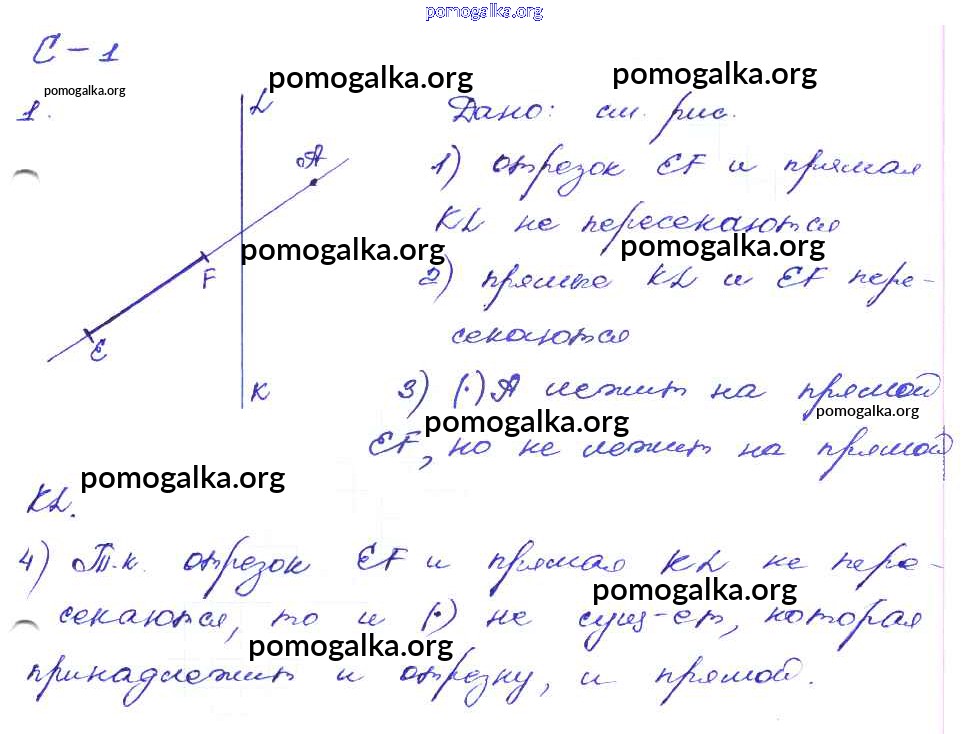 pomogalka.org
С – 1
pomogalka.org
pomogalka.org
pomogalka.org
1.
L
Дано: см. рис.
A
1) отрезок EF и прямая
KL не пересекаются
pomogalka.org
pomogalka.org
F
2) прямые KL и EF пере-
E
секаются
K
3) (·) A лежит на прямой
pomogalka.org
pomogalka.org
EF, но не лежит на прямой
pomogalka.org
KL.
4) Т.к. отрезок EF и прямая KL не пере-
pomogalka.org
секаются, то и (·) не сущ-ет, которая
pomogalka.org
принадлежит и отрезку, и прямой.